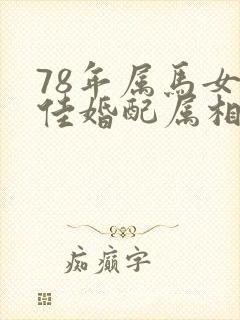 78年属馬女
佳婚配属相
痴癫字